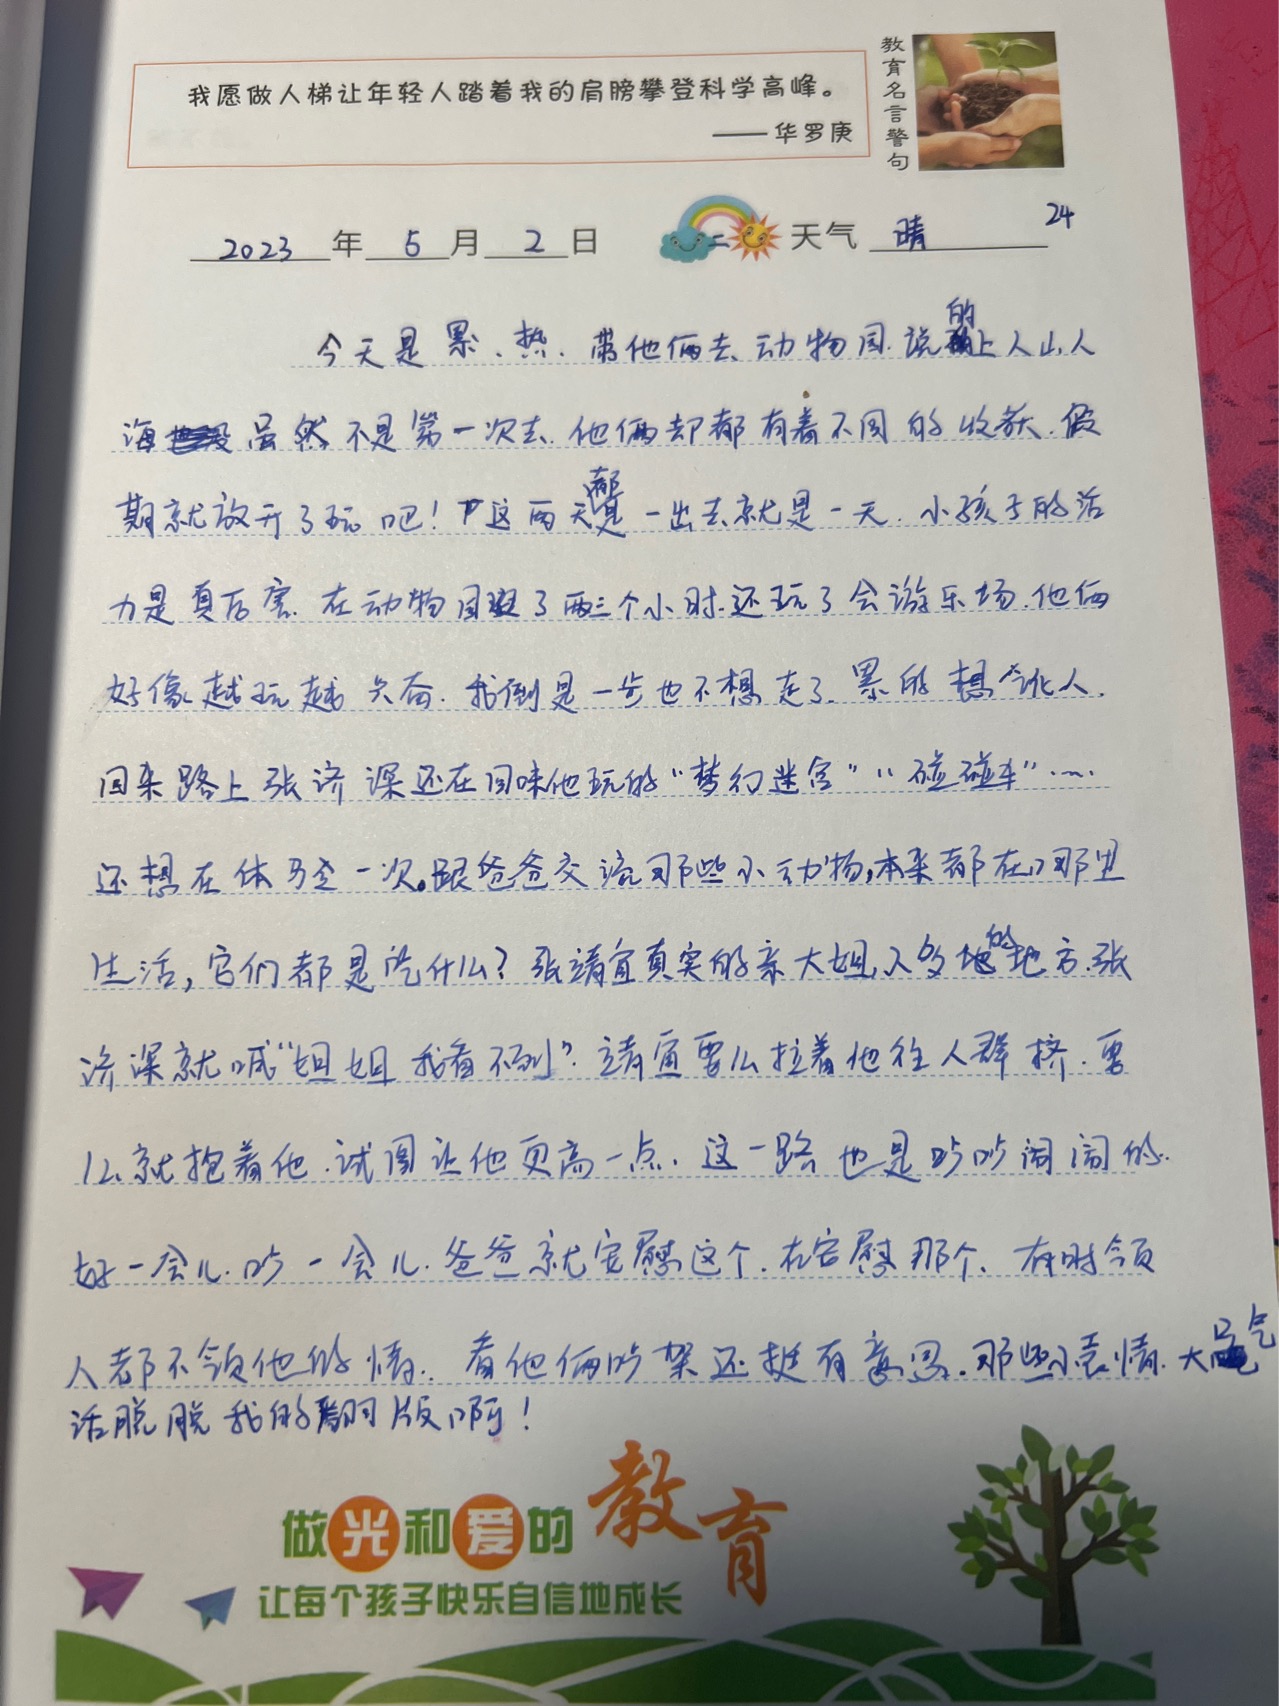 我愿做人梯让年轻人踏着我的肩膀攀登科学高峰。
——华罗庚
教育名言警句
2023年5月2日 二 天气 晴 24
今天是累、热、带他俩去动物园.说的上人山人
海虽然不是第一次去.他俩却都有着不同的收获.假
期就放开了玩吧!这两天都是一出去就是一天.小孩子的活
力是真厉害.在动物园逛了两三个小时.还玩了会游乐场.他俩
好像越玩越兴奋.我倒是一步也不想走了.累的想
回来路上张济深还在回味他玩的“梦幻迷宫”“碰碰车”……
还想在体验一次。跟爸爸交流那些小动物,本来都在哪里
生活,它们都是吃什么?张靖宜真实的亲大姐,人多的地方.张
济深就喊“姐姐我看不到”.靖宜要么拉着他往人群挤.要
么就抱着他.试图让他更高一点.这一路也是吵吵闹闹的.
好一会儿.吵一会儿.爸爸就安慰这个.在安慰那个.有时领
人都不领他的情.看他俩吵架还挺有意思.那些小表情.大口气
活脱脱我的翻版啊!
做光和爱的教育
让每个孩子快乐自信地成长